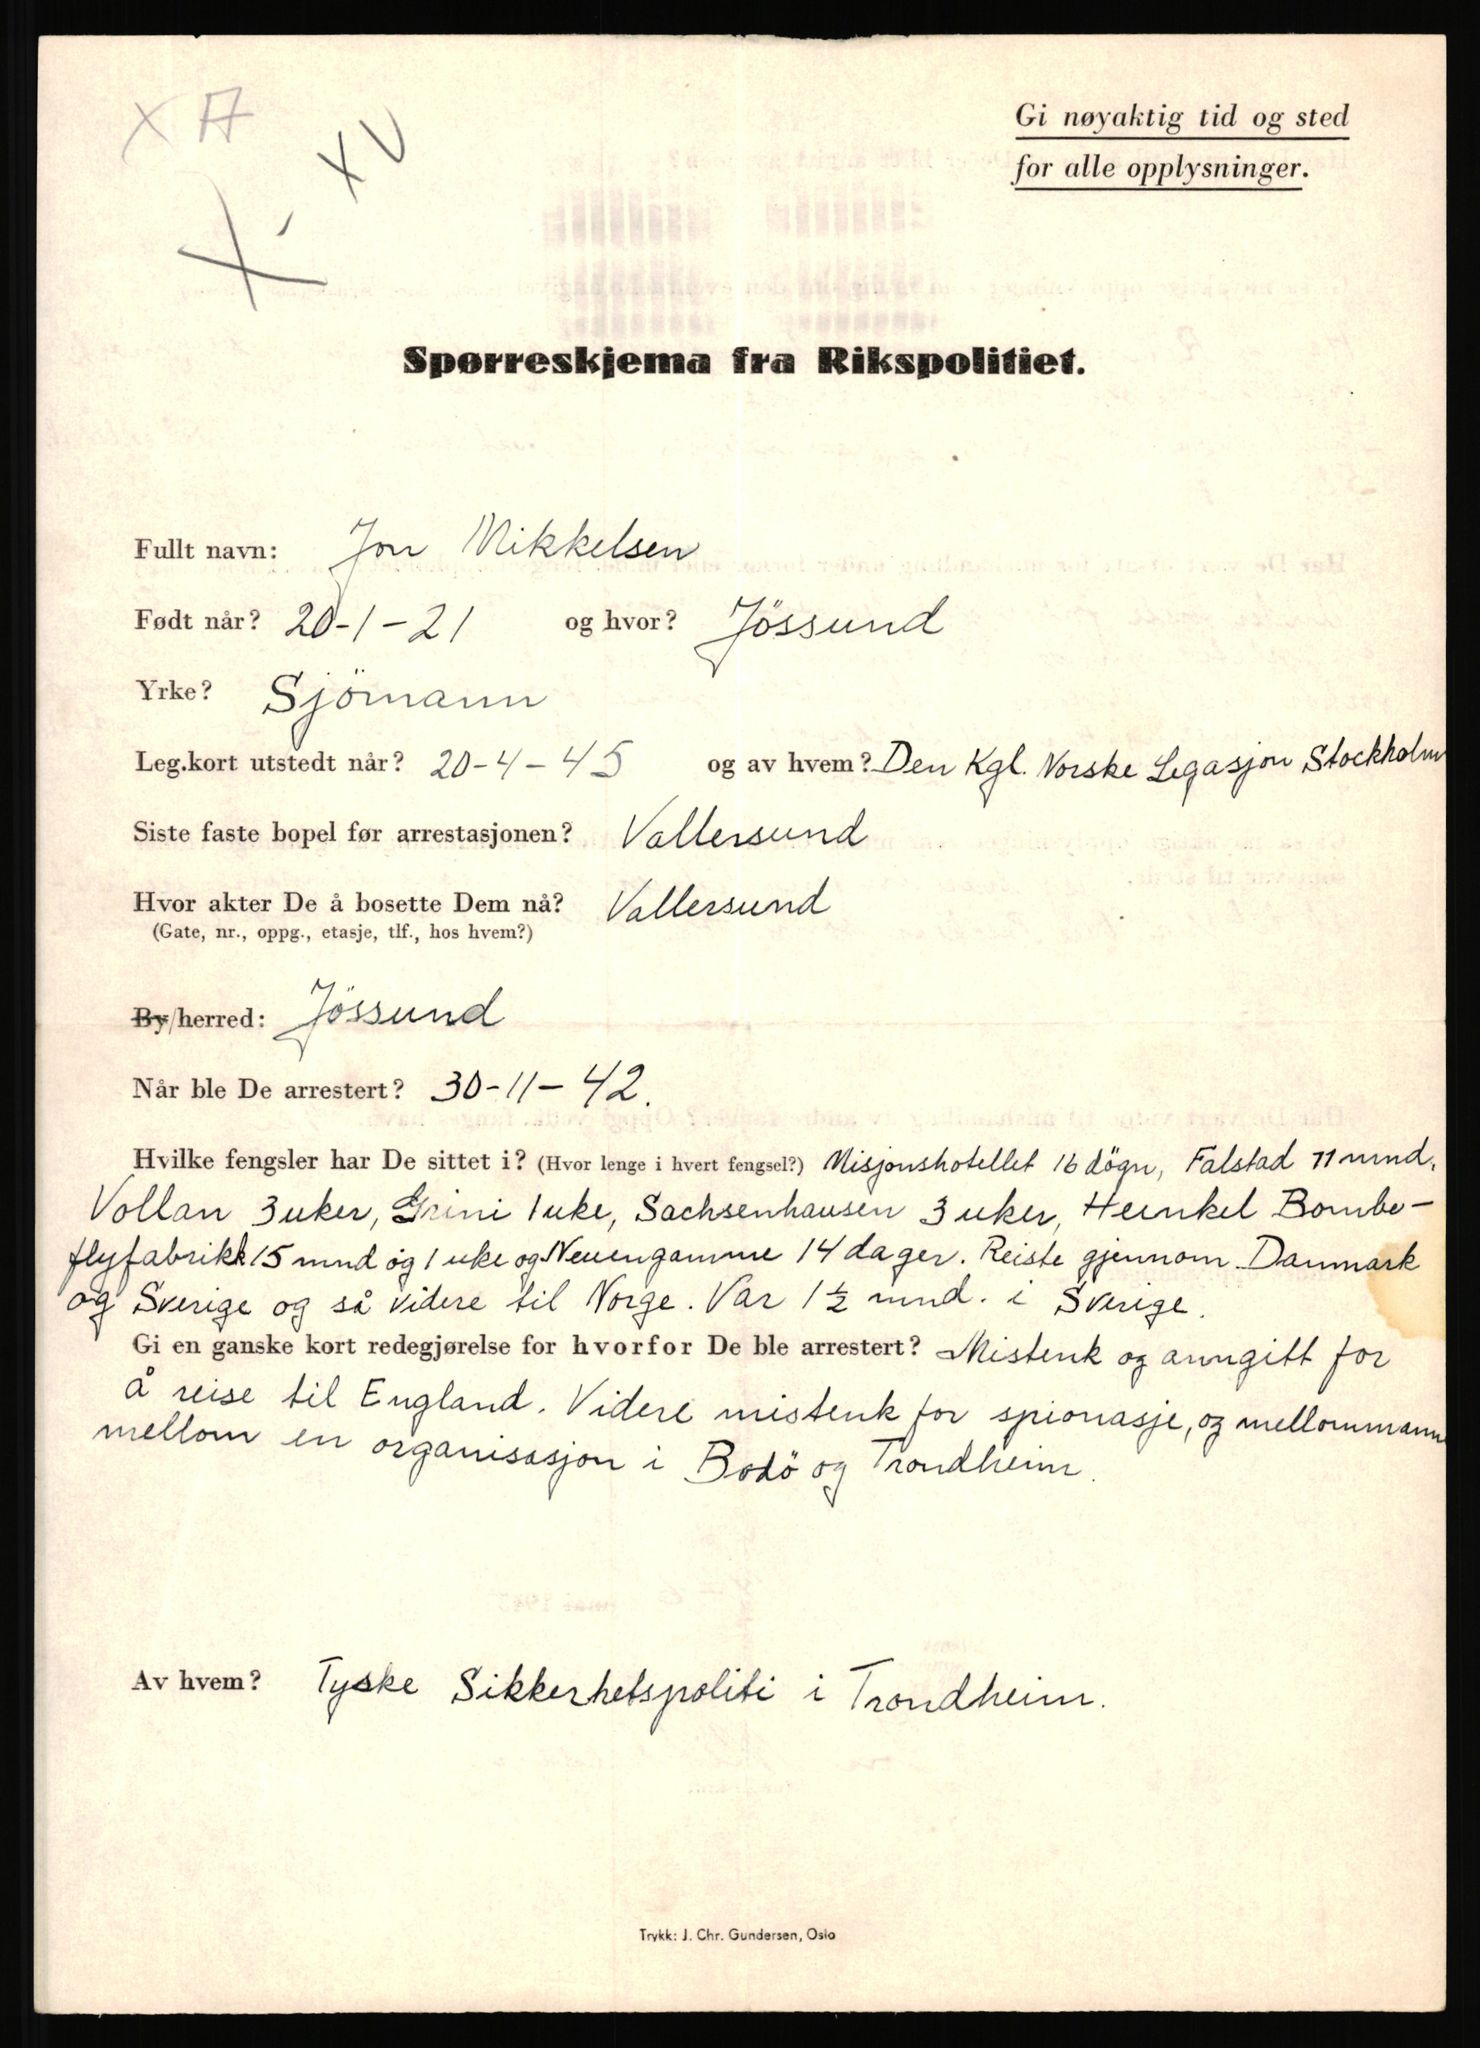 X A
X V
Gi nøyaktig tid og sted
for alle opplysninger.
Spørreskjema fra Rikspolitiet.
Fullt navn: Jon Mikkelsen
Født når? 20-1-21 og hvor? Jössund
Yrke? Sjömann
Leg.kort utstedt når? 20-4-45 og av hvem? Den Kgl. Norske Legasjon Stockholm
Siste faste bopel før arrestasjonen? Vallersund
Hvor akter De å bosette Dem nå? Vallersund
(Gate, nr., oppg., etasje, tlf., hos hvem?)
By/herred: Jössund
Når ble De arrestert? 30-11-42.
Hvilke fengsler har De sittet i? (Hvor lenge i hvert fengsel?) Misjonshotellet 16 dögn, Falstad 11 mnd,
Vollan 3 uker, Grini 1 uke, Sachsenhausen 3 uker, Heinkel Bombe-
flyfabrikk 15 mnd og 1 uke og Neuengamme 14 dager. Reiste gjennom Danmark
og Sverige og så videre til Norge. Var 1 ½ mnd. i Sverige.
Gi en ganske kort redegjørelse for hvorfor De ble arrestert? Mistenk og anngitt for
å reise til England. Videre mistenk for spionasje, og mellommann
mellom en organisasjon i Bodö og Trondheim.
Av hvem? Tyske Sikkerhetspoliti i Trondheim.
Trykk: J. Chr. Gundersen, Oslo